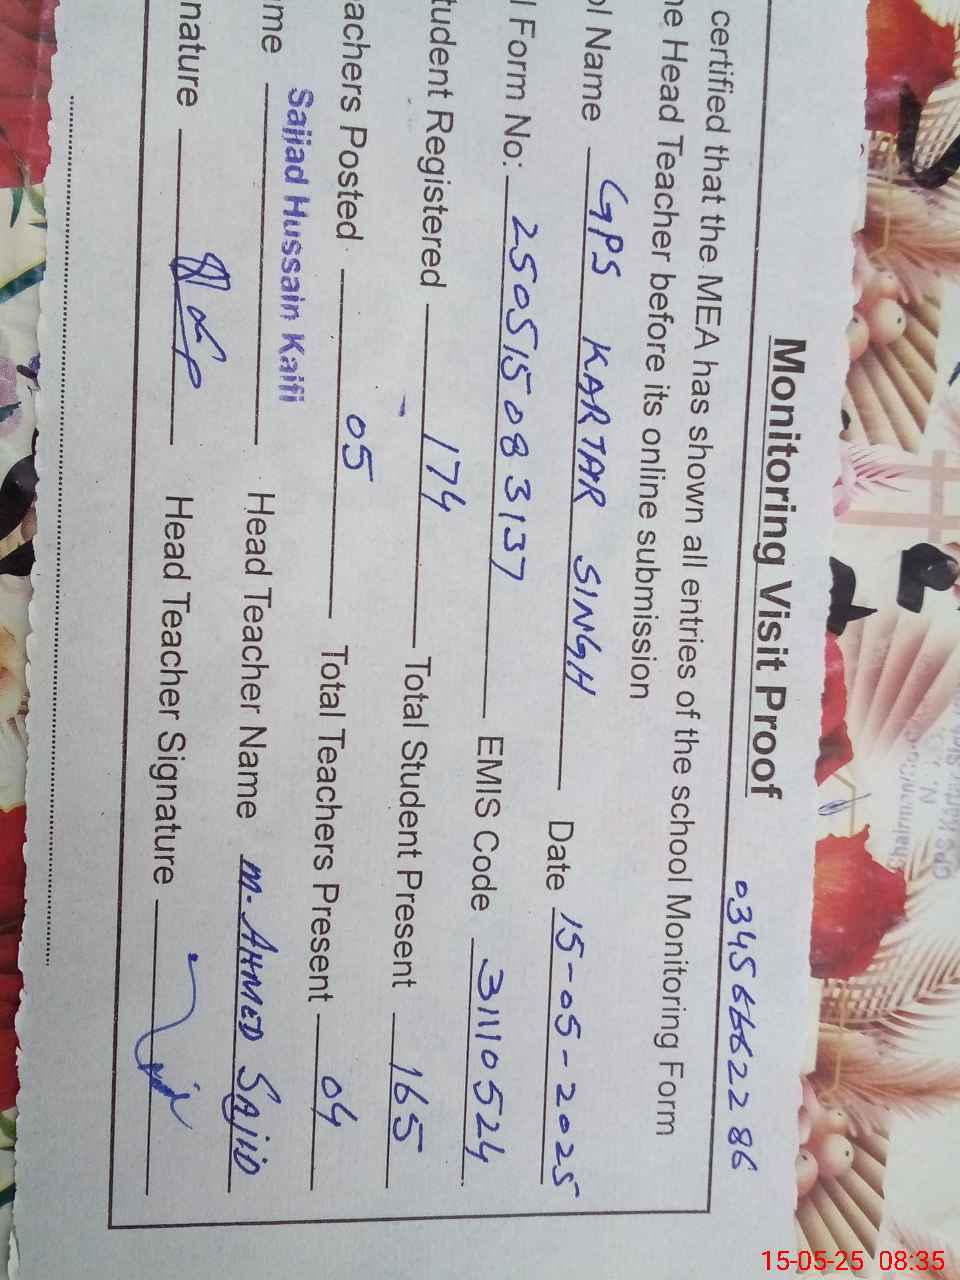 Monitoring Visit Proof
0345 6662286
certified that the MEA has shown all entries of the school Monitoring Form
he Head Teacher before its online submission
ol Name GPS KARTAR SINGH Date 15-05-2025
l Form No: 250515083137 EMIS Code 31110524
tudent Registered 174 Total Student Present 165
achers Posted 05 Total Teachers Present 04
Sajjad Hussain Kaifi
me Head Teacher Name M. AHMED SAJID
nature Head Teacher Signature
15-05-25 08:35